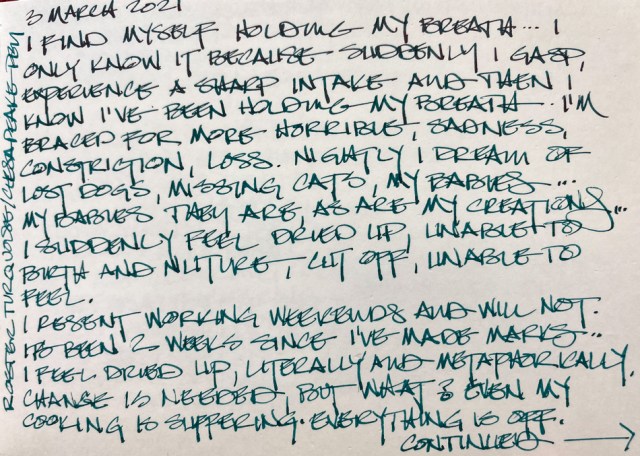 3 MARCH 2021
I FIND MYSELF HOLDING MY BREATH... I
ONLY KNOW IT BECAUSE SUDDENLY I GASP,
EXPERIENCE A SHARP INTAKE AND THEN I
KNOW I'VE BEEN HOLDING MY BREATH.. I'M
BRACED FOR MORE HORRIBLE, SADNESS,
CONSTRICTION, LOSS. NIGHTLY I DREAM OF
LOST DOGS, MISSING CATS, MY BABIES...
MY BABIES THEY ARE, AS ARE MY CREATIONS...
I SUDDENLY FEEL DRIED UP, UNABLE TO
BIRTH AND NUTURE, CUT OFF, UNABLE TO
FEEL.
I RESENT WORKING WEEKENDS AND WILL NOT.
IT'S BEEN 2 WEEKS SINCE I'VE MADE MARKS...
I FEEL DRIED UP, LITERALLY AND METAPHORICALLY.
CHANGE IS NEEDED, BUT WHAT? EVEN MY
COOKING IS SUFFERING. EVERYTHING IS OFF.
CONTINUED →
TURQUOISE/CHESAPEAKE PEN